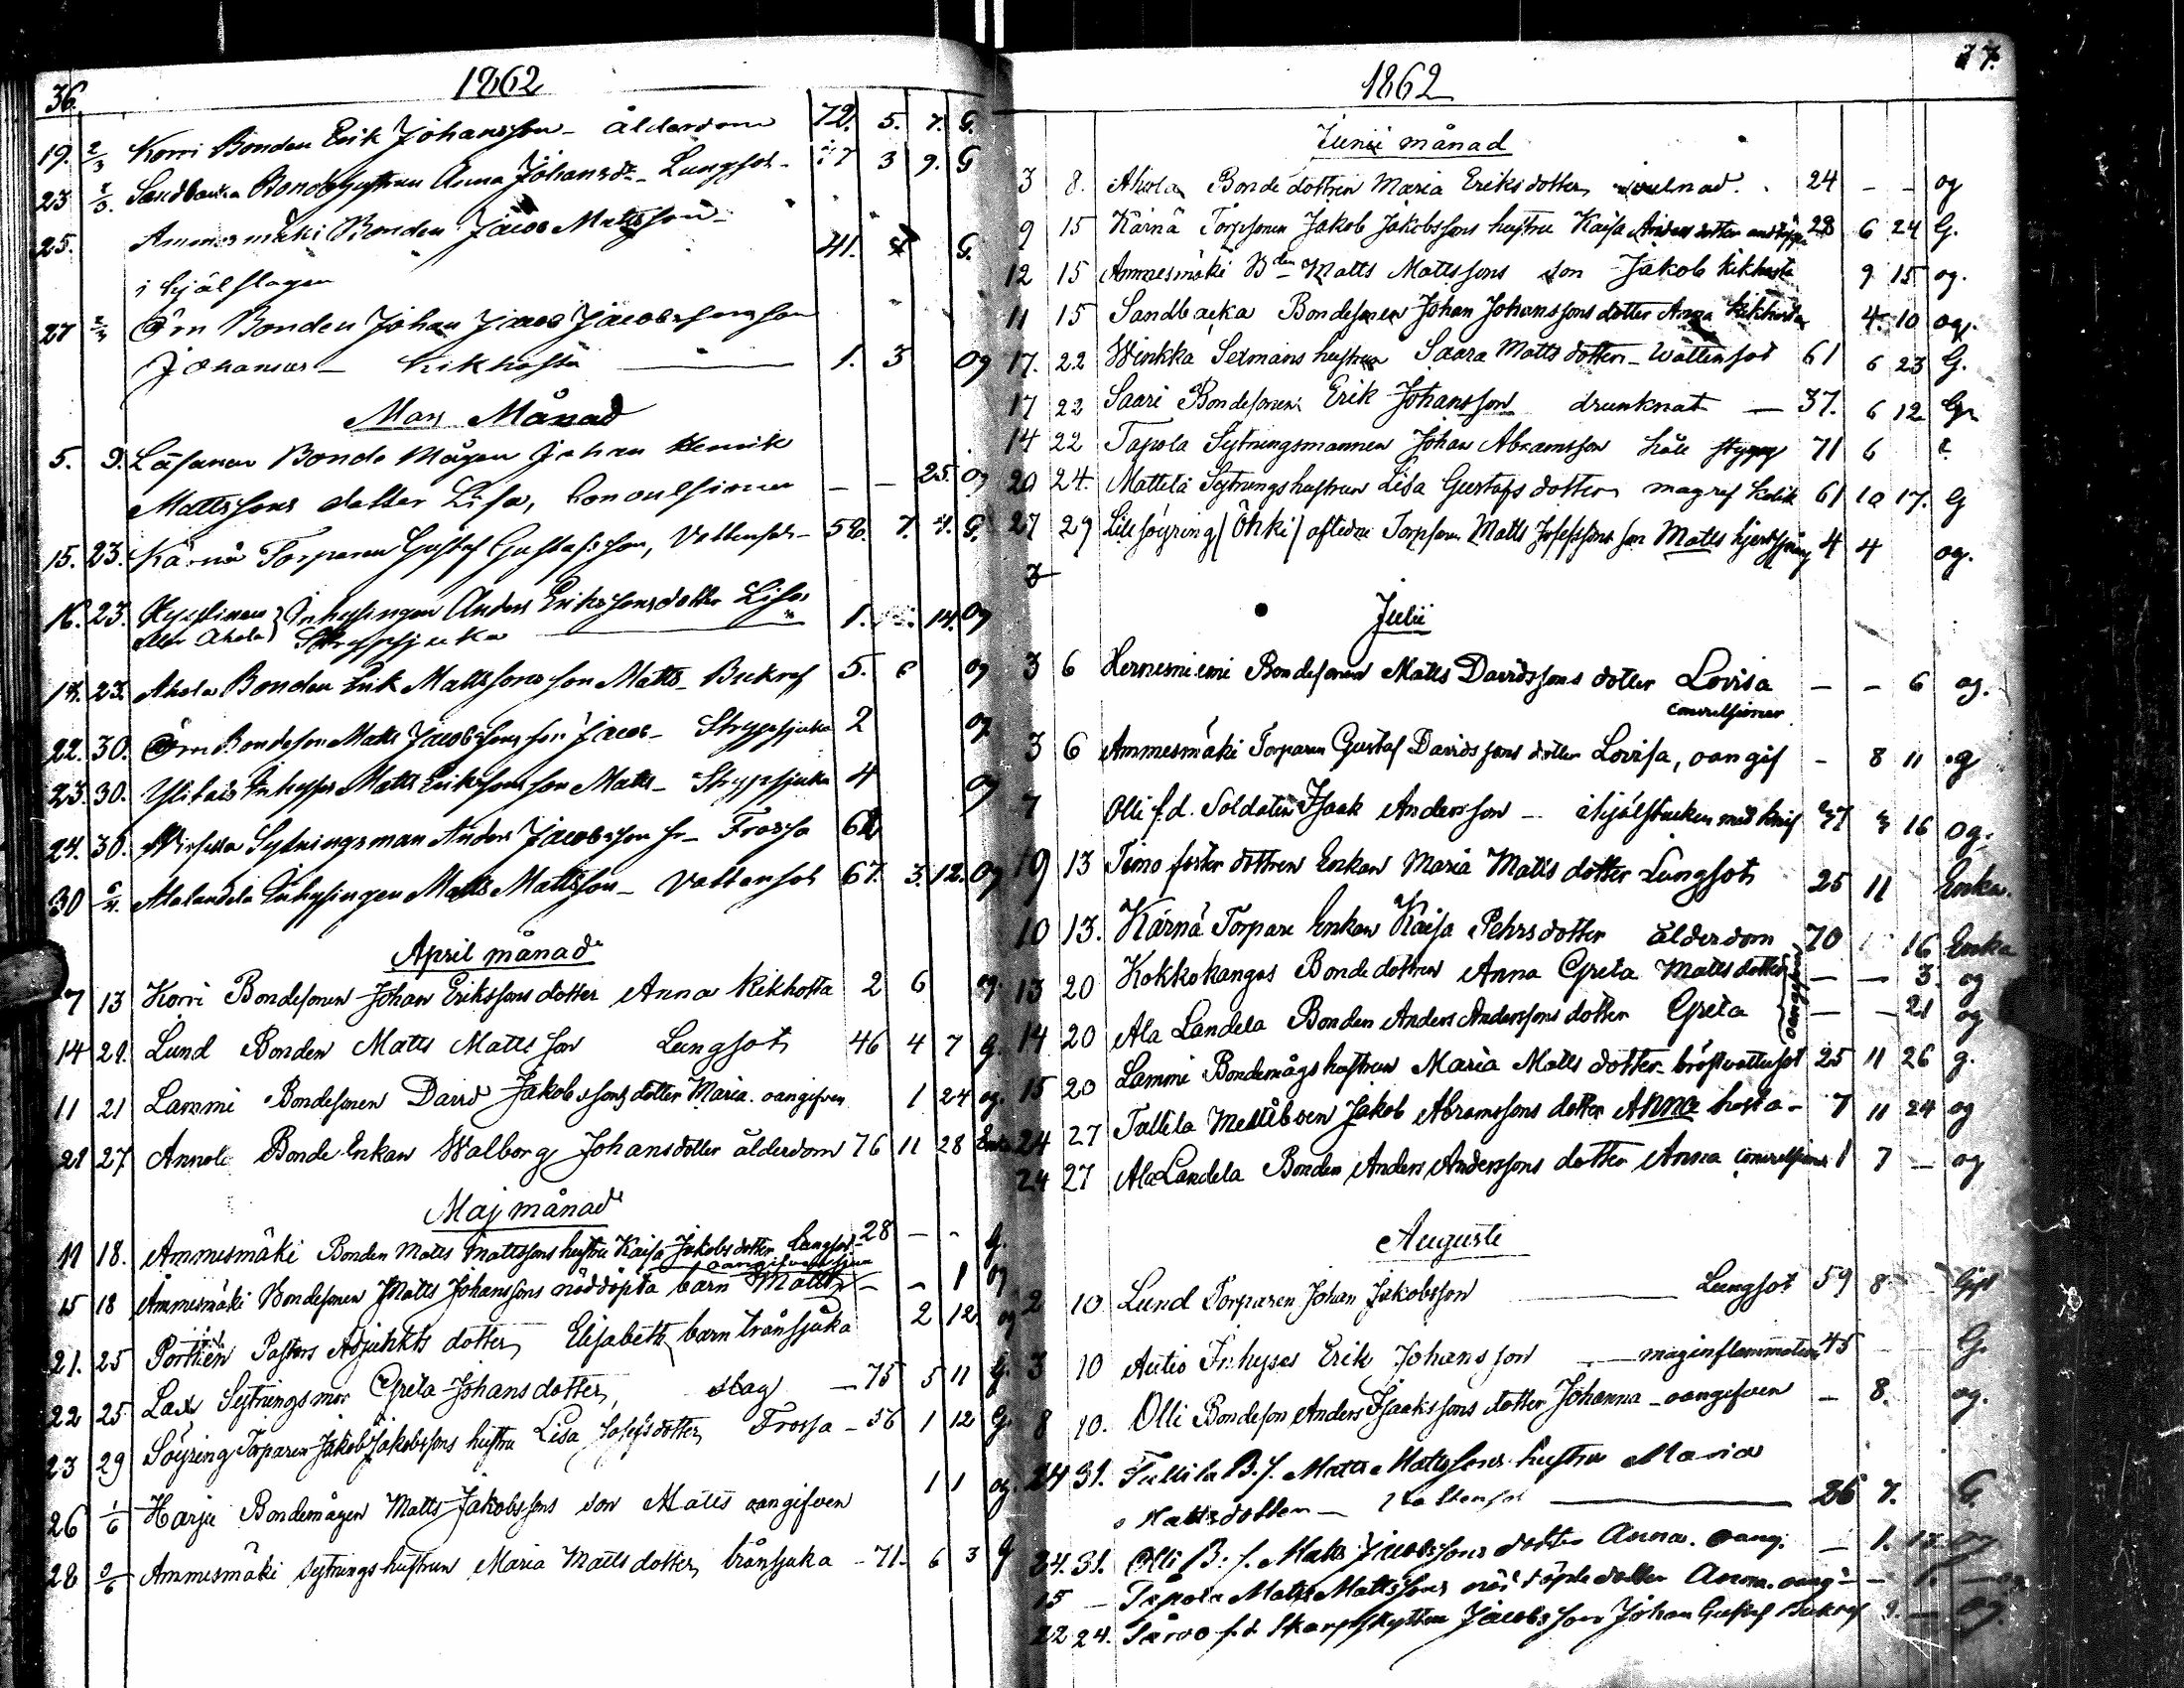 36.
1862
19. 2/3 Korri Bonden Erik Johansson - ålderdom 72. 5. 7. G.
23 2/3. Sandbacka Bondehustrun Anna Johansdr - Lungsot - 3 9. G
25. Ammesmäki Bonden Jacob Mattsson - 41. G.
ihjälslagen
27 2/3 Örn Bonden Johan Jacob Jacobssons son
Johannes - kikhosta — 1. 3 og
Mars Månad
5. 9. Läsanen Bonde Mågen Johan Henrik
Mattssons dotter Lisa, Convulsioner — — 25. og
15. 23. Kärnä Torparen Gustaf Gustafsson, Vattensot - 58. 7. 4. G.
16. 23. Inhysingen Anders Erikssons dotter Lisa
Ahola) Strypsjuka 1. 14. og
17. 23. Ahola Bonden Erik Mattssons son Matts - Bukref 5. 6 og
22. 30. Örn Bondeson Matts Jacobssons son Jacob - Strypsjuka 2 og
23. 30. Ylitalo Inhyses Matts Erikssons son Matts - Strypsjuka 4 og
24. 30. Sytningsman Anders Jacobsson - Frossa 62
30 6/4. Alalandela Inhysingen Matts Mattsson - Vattensot 67. 3. 12. Og
April månad
7 13 Korri Bondesonen Johan Erikssons dotter Anna kikhosta 2 6 og
14 21. Lund Bonden Matts Mattsson Lungsot 46 4 7 g.
11 21 Lammi Bondesonen David Jakobssons dotter Maria oangifven 1 24 og.
21 27 Annola Bonde Enkan Walborg Johansdotter ålderdom 76 11 28 Enka
Maj månad
11 18. Ammesmäki Bonden Matts Mattssons hustru Kaisa Jakobsdotter lungsot - 28 — - g.
oangifven sjuk
15 18 Ammesmäki Bondesonen Matts Johanssons nöddöpta barn Matts — - 1 og
21. 25 Porthén Pastors Adjunkts dotter Elisabeth barn trånsjuka 2 12 og
22 25 Lax Sytningsmor Greta Johansdotter, slag — 75 5 11 G.
23 29 Söyring Torparen Jakob Jakobssons hustru Lisa Josefsdotter Frossa - 56 1 12 G.
26 1/6 Harju Bondemågen Matts Jakobssons son Matts oangifven 1 1 og.
28 2/6 Ammesmäki Sytningshustrun Maria Mattsdotter trånsjuka - 71. 6 3 g
37.
1862
Junii månad
3 8. Ahola Bonde dottren Maria Eriksdotter 24 — — og
9 15 Kärnä Torparen Jakob Jakobssons hustru Kaisa Andersdotter 28 6 24 G.
12 15 Ammesmäki Bden Matts Mattssons son Jakob kikhosta 9 15 og.
11 15 Sandbacka Bondesonen Johan Johanssons dotter Anna kikhosta 4 10 og.
17. 22 Winkka Sexmans hustrun Saara Mattsdotter - Wattensot 61 6 23 G.
17 22 Saari Bondesonen Erik Johansson drunknat — 37. 6 12 G.
14 22 Tapola Sytningsmannen Johan Abramsson håll styng 71 6
20 24. Mattila Sytningshustrun Lisa Gustafsdotter magref kolik 61 10 17. G
27 29 Lillsöyring / Öhki / aflidne Torparen Matts Josefssons son Matts 4 4 og.
3
Julii
3 6 Hernesniemi Bondesonen Matts Davidssons dotter Lovisa — - 6 og.
convulsioner
3 6 Ammesmäki Torparen Gustaf Davidssons dotter Lovisa, oangif - 8 11 og
7 Olli f.d. Soldaten Isaak Andersson - ihjälstucken med knif 37 3 16 og.
9 13 Timo foster dottren Enkan Maria Mattsdotter Lungsot 25 11 Enka.
10 13. Kärnä Torpare Enkan Kaisa Pehrsdotter ålderdom 70 16 Enka
13 20 Kokkokangas Bonde dottren Anna Greta Mattsdotter — — 3. og
14 20 Ala Landela Bonden Anders Anderssons dotter Greta } oangifven — - 21 og
15 20 Lammi Bondemågs hustrun Maria Mattsdotter bröstvattusot 25 11 26 g.
24 27 Tallila Jakob Abramssons dotter Anna hosta - 7 11 24 og
24 27 Ala Landela Bonden Anders Anderssons dotter Anna convulsioner 1 7 — og
Augusti
2 10 Lund Torparen Johan Jakobsson — Lungsot 59 8 Gift
3 10 Autio Inhyses Erik Johansson — maginflammation 45 G.
8 10. Olli Bondeson Anders Isaakssons dotter Johanna - oangifven — 8. og.
24 31. Tullila B. s. Matts Mattssons hustru Maria
Mattsdotter — Vattensot — 26 7. G.
24. 31. Olli B. s. Matts Jacobssons dotter Anna. oang. — 1. og
15 — Tapola Matts Mattssons nöddöpta dotter Anna. oang. — 1. — og
22 24. f.d. Skarpskytten Jacobs son Johan Gustaf Bukref 9. — og.